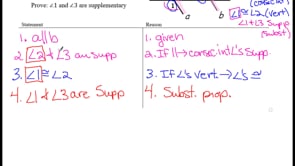 Prove: ∠1 and ∠3 are supplementary
1
a b
∠1≅∠2 (vert)
∠1+∠3 supp
(subst)
Statement Reason
1. a∥b 1. given
2. ∠2 + ∠3 are supp 2. If ∥→consec int ∠'s Supp
3. ∠1≅∠2 3. If ∠'s vert.→∠'s ≅
4. ∠1 + ∠3 are Supp 4. Subst. prop.